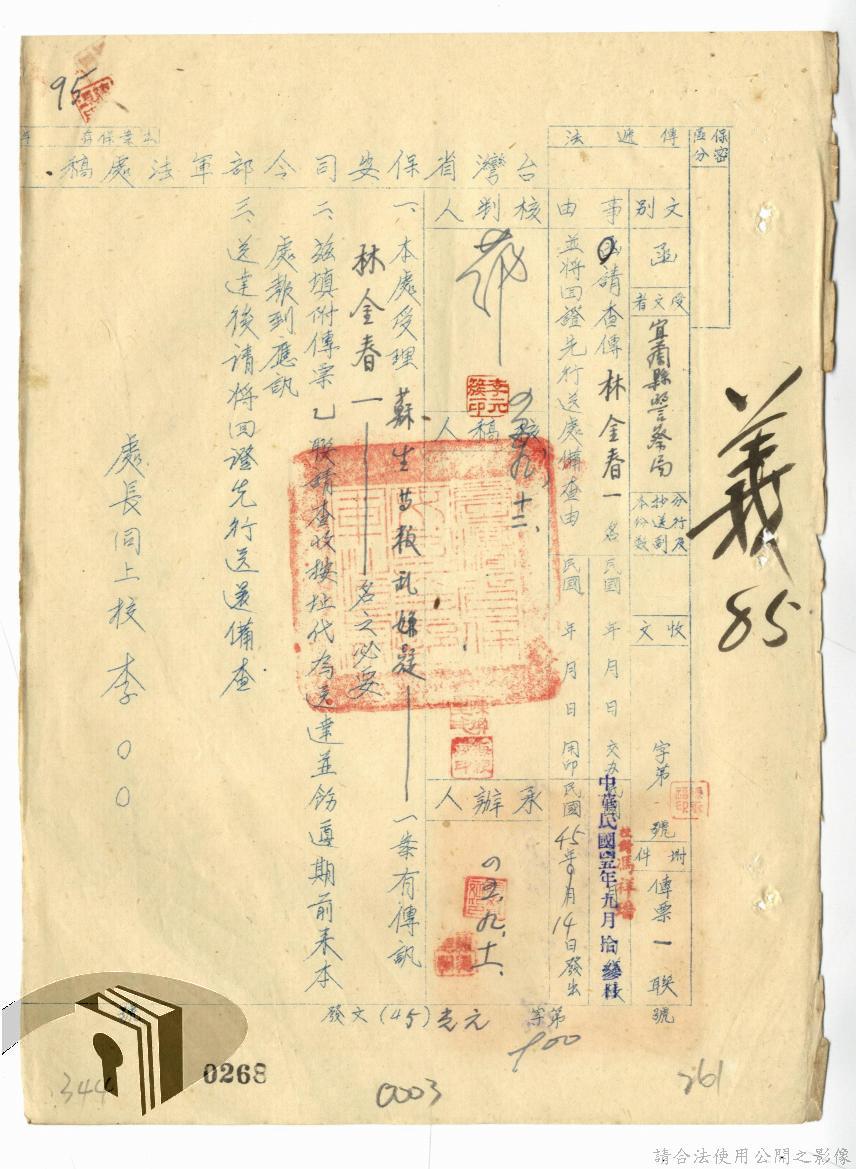 95
保密
區分
傳遞法
台灣省保安司令部軍法處稿
文別
函
受文者
宜蘭縣警察局
分行及抄送副本份數
收文
字第 號
附件
傳票一聯
號
事由
函請查傳林金春一名
並將回證先行送處備查由
民國 年 月 日 交办
民國 年 月 日 用印
中華民國四五年九月拾叁
校對馮祥
民國45年9月14日發出
核判人
李元簇印
核稿人
承辦人
一、本處受理蘇生等叛乱嫌疑一案有傳訊
林金春一名之必要
二、茲填附傳票乙聯請查收按址代為送達並飭遵期前来本
處報到應訊
三、送達後請將回證先行送還備查
處長同上校李○○
發文(45)
字第
義
85
344
0268
0003
261
請合法使用公開之影像